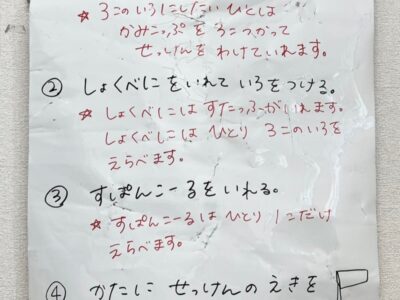 ☆ 3このいろにしたい ひとは
かみこっぷを 3こ つかって
せっけんを わけていれます。
② しょくべにをいれて いろをつける。
☆ しょくべには すたっふが いれます。
しょくべには ひとり 3この いろを
えらべます。
③ すぱんこーるをいれる。
☆ すぱんこーるは ひとり 1こだけ
えらべます。
④ かたに せっけんの えきを